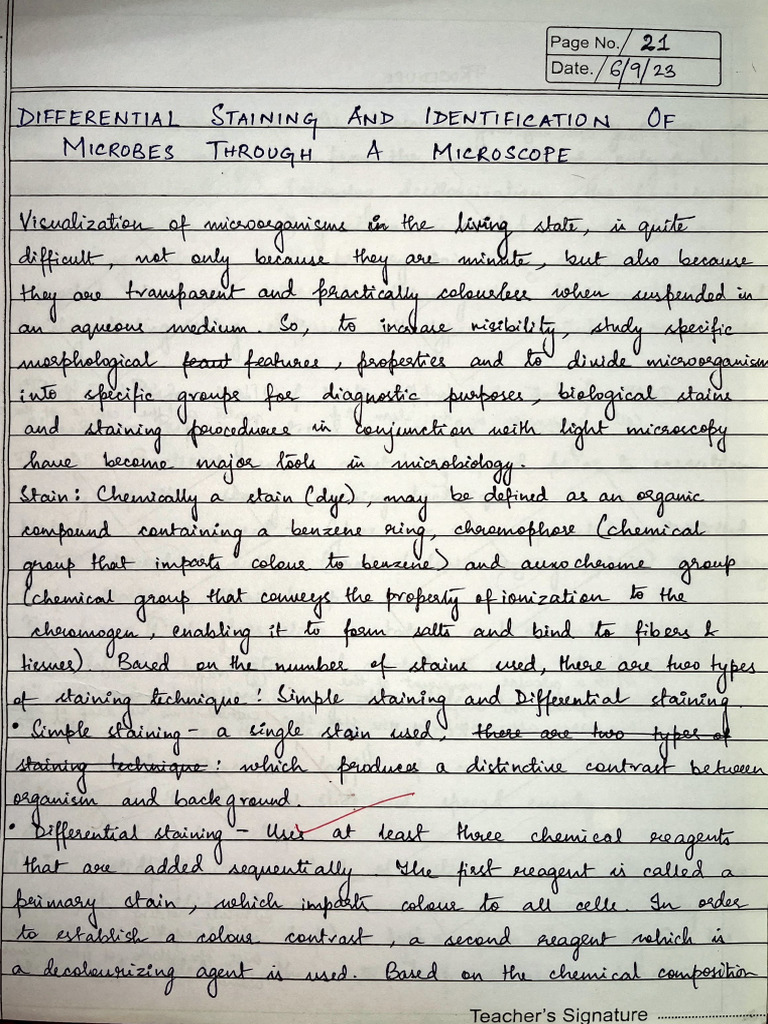 Page No. 21
Date. 6/9/23
DIFFERENTIAL STAINING AND IDENTIFICATION OF
MICROBES THROUGH A MICROSCOPE
Visualization of microorganisms in the living state, is quite
difficult, not only because they are minute, but also because
they are transparent and practically colourless when suspended in
an aqueous medium. So, to increase visibility, study specific
morphological feaut features, properties and to divide microorganism
into specific groups for diagnostic purposes, biological stains
and staining procedures in conjunction with light microscopy
have become major tools in microbiology.
Stain: Chemically a stain (dye), may be defined as an organic
compound containing a benzene ring, chromophore (chemical
group that imparts colour to benzene) and auxochrome group
(chemical group that conveys the property of ionization to the
chromogen, enabling it to form salts and bind to fibers &
tissues). Based on the number of stains used, there are two types
of staining technique: Simple staining and Differential staining.
• Simple staining - a single stain used, there are two types of
staining technique: which produces a distinctive contrast between
organism and background.
• Differential staining - Uses at least three chemical reagents
that are added sequentially. The first reagent is called a
primary stain, which imparts colour to all cells. In order
to establish a colour contrast, a second reagent which is
a decolourizing agent is used. Based on the chemical composition
Teacher's Signature